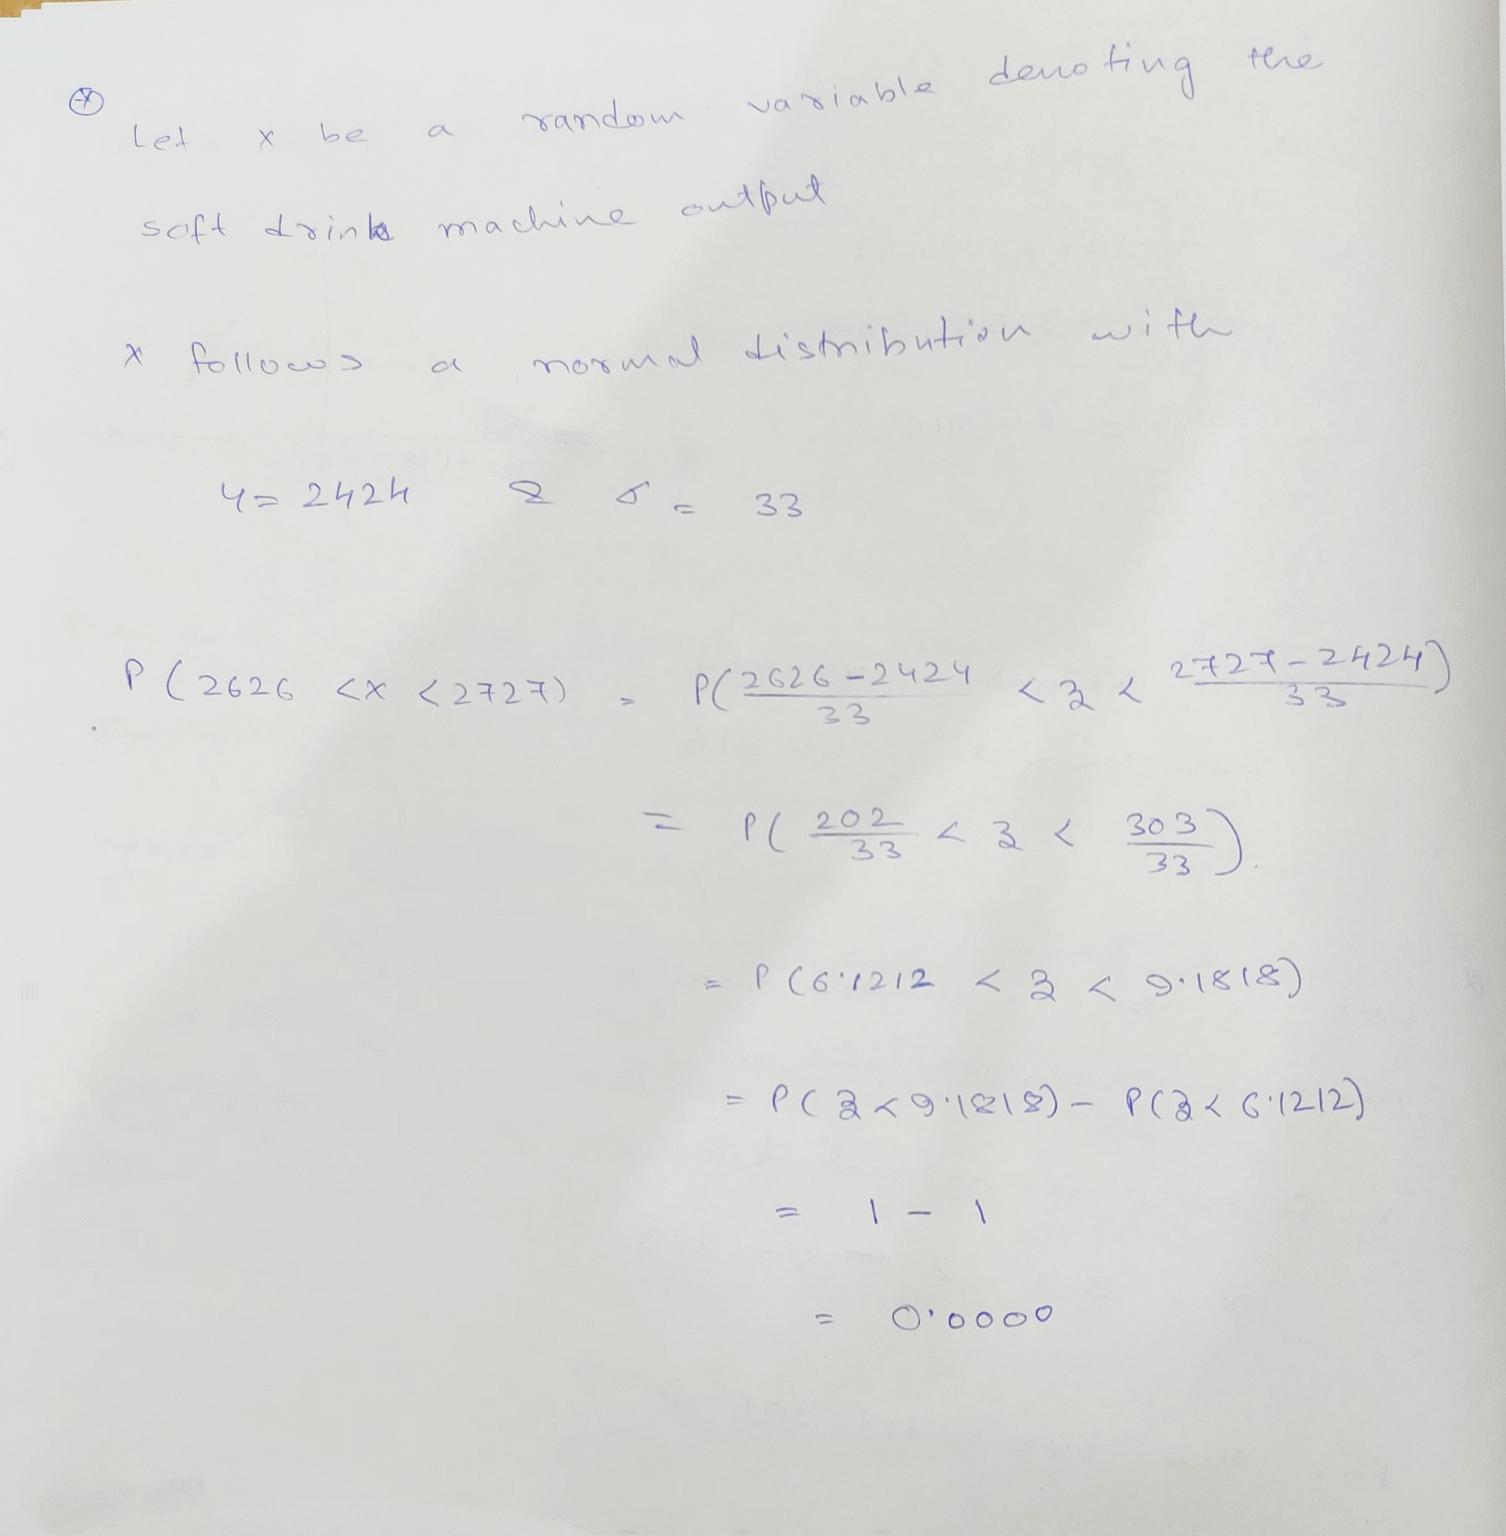 Let x be a random variable denoting the
soft drinks machine output
x follows a normal distribution with
μ = 2424 & σ = 33
P(2626 < x < 2727) = P(2626-2424/33 < z < 2727-2424/33)
= P(202/33 < z < 303/33).
= P(6.1212 < z < 9.1818)
= P(z < 9.1818) - P(z < 6.1212)
= 1 - 1
= 0.0000